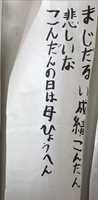 まじだるい成績こんたん
悲しいな
こんたんの日は母ひょうへん